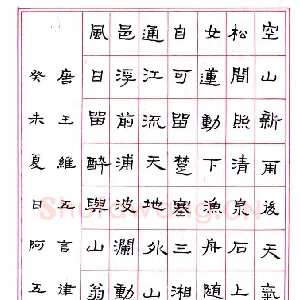 空山新雨後天氣
松間照清泉石上
女蓮動下漁舟隨
自可留楚塞三湘
通江流天地外山
邑浮前浦波瀾動
風日留醉與山翁
唐王維五言律
癸未夏日阿五